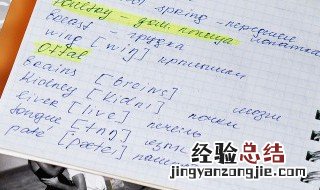 Poultry - дом. птица
spring - передние
breast - грудка
лопатка
wing [wiŋ] крылышки
Offal
Brains [breinz] мозги
Kidney [kidni] почки
liver [livə] печень
tongue [tʌŋ] язык
paté [pætei] паштет
经验总结
jingyanzongjie.com